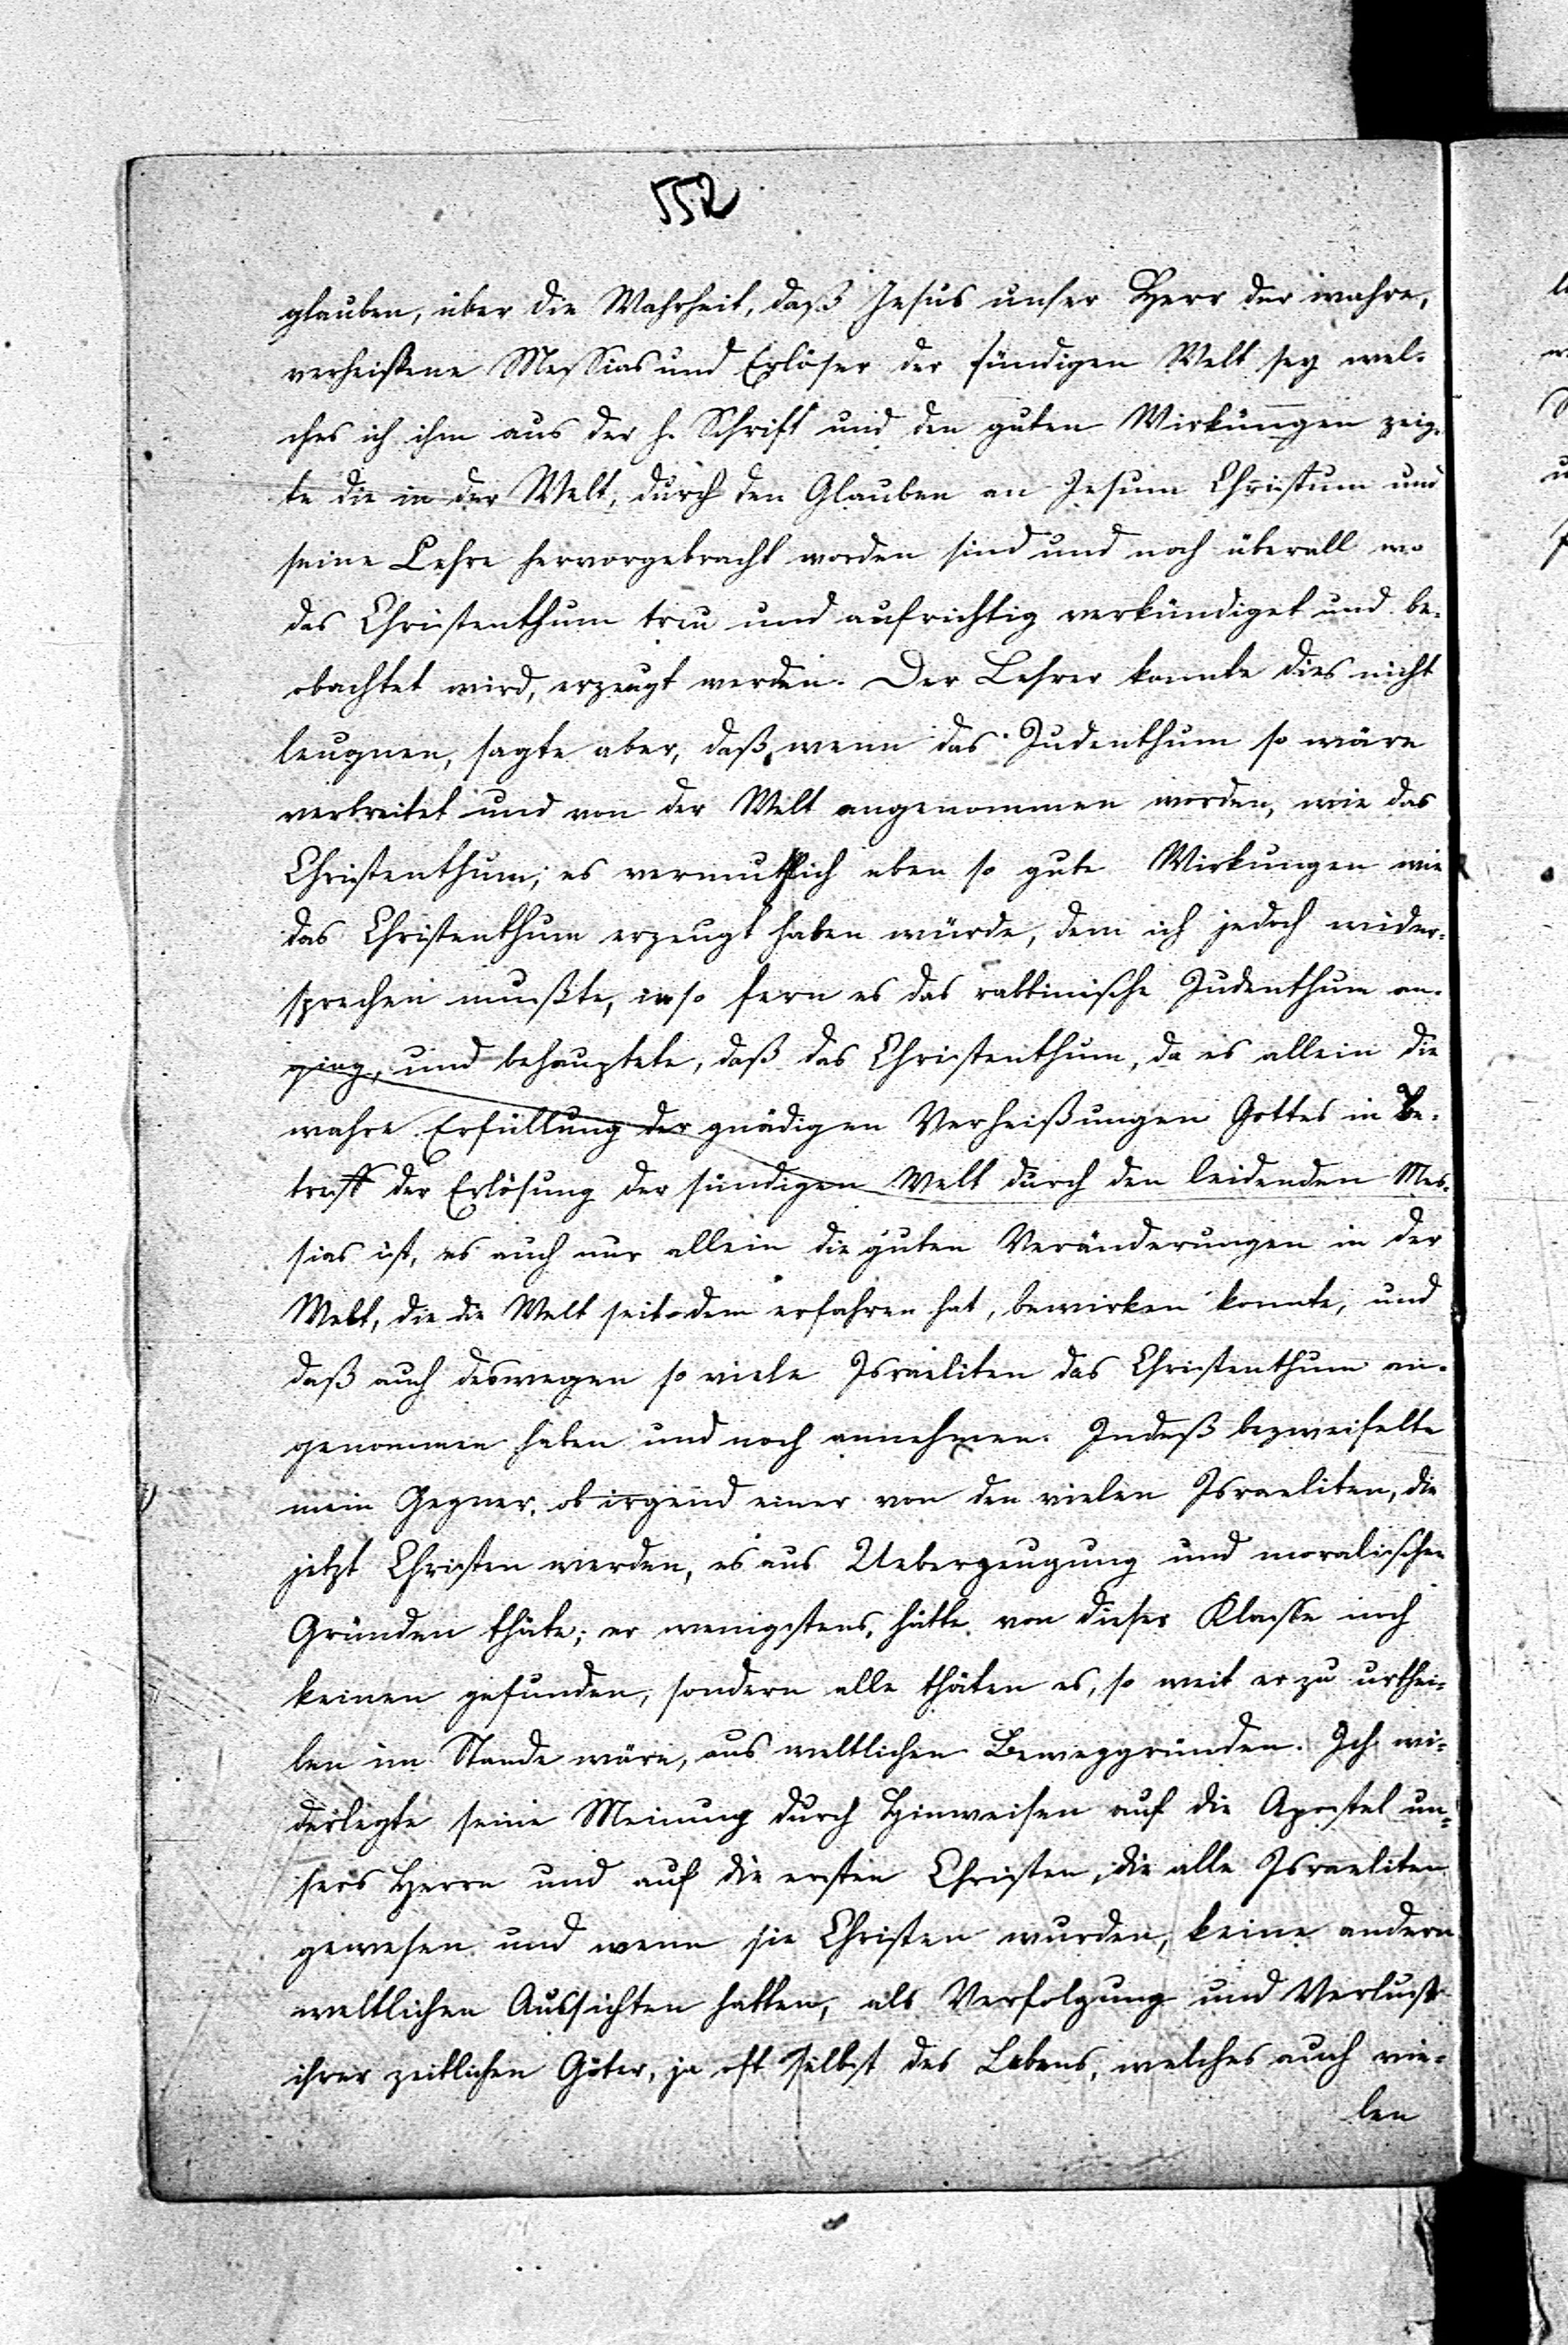 552
glauben, über die Wahrheit, daß Jesus unser Herr der wahre,
verheißene Messias und Erlöser der sündigen Welt sey wel-
ches ich ihm aus der h. Schrift und den guten Wirkungen zeig-
te die in der Welt, durch den Glauben an Jesum Christum und
seine Lehre hervorgebracht worden sind und noch überall wo
das Christenthum treu und aufrichtig verkündiget und be-
obachtet wird, erzeugt werden. Der Lehrer konnte dies nicht
leugnen, sagte aber, daß, wenn das Judenthum so wäre
verbreitet und von der Welt angenommen worden, wie das
Christenthum; es vermuthlich eben so gute Wirkungen wie
das Christenthum erzeugt haben würde, dem ich jedoch wider-
sprechen mußte, in so fern es das rabbinische Judenthum an-
ging, und behauptete, daß das Christenthum, da es allein die
wahre Erfüllung der gnädigen Verheißungen Gottes in Be-
treff der Erlösung der sündigen Welt durch den leidenden Mes-
sias ist, es auch nur allein die guten Veränderungen in der
Welt, die die Welt seit dem erfahren hat, bewirken konnte, und
daß auch deswegen so viele Israeliten das Christenthum an-
genommen haben und noch annehmen. Indeß bezweifelte
mein Gegner, ob irgend einer von den vielen Israeliten, die
jetzt Christen werden, es aus Ueberzeugung und moralischen
Gründen thäte; er wenigstens, hätte von dieser Klasse noch
keinen gefunden, sondern alle thäten es, so weit er zu urthei-
len im Stande wäre, aus weltlichen Beweggründen. Ich wi-
derlegte seine Meinung durch Hinweisen auf die Apostel un-
sers Herrn und auf die ersten Christen, die alle Israeliten
gewesen und wenn sie Christen wurden, keine andern
weltlichen Aussichten hatten, als Verfolgung und Verlust
ihrer zeitlichen Güter, ja oft selbst des Lebens, welches auch vie-
len